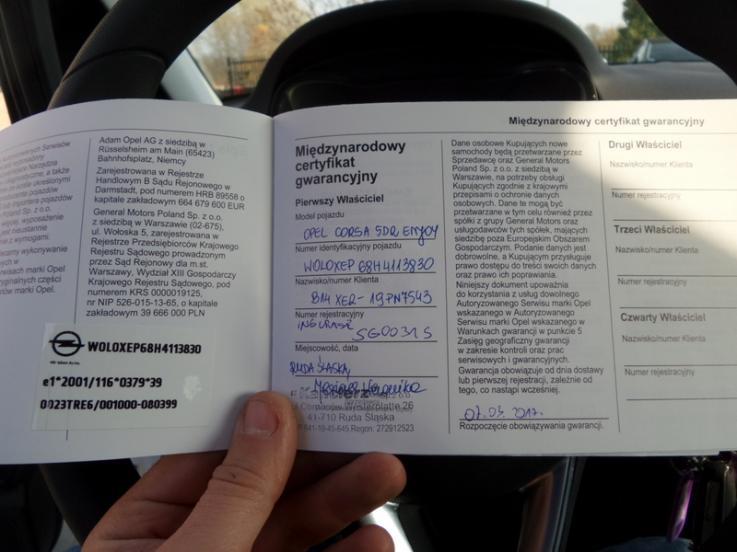 Autoryzowanych Serwisów
Adam Opel AG z siedzibą w
Rüsselsheim am Main (65423)
Bahnhofsplatz, Niemcy
Zarejestrowana w Rejestrze
Handlowym B Sądu Rejonowego w
Darmstad, pod numerem HRB 89558 o
kapitale zakładowym 664 679 600 EUR
General Motors Poland Sp. z o.o.
z siedzibą w Warszawie (02-675),
ul. Wołoska 5, zarejestrowana w
Rejestrze Przedsiębiorców Krajowego
Rejestru Sądowego prowadzonym
przez Sąd Rejonowy dla m.st.
Warszawy, Wydział XIII Gospodarczy
Krajowego Rejestru Sądowego, pod
numerem KRS 0000019125,
nr NIP 526-015-13-65, o kapitale
zakładowym 39 666 000 PLN
W0L0XEP68H4113830
e1*2001/116*0379*39
0023TRE6/001000-080399
Międzynarodowy certyfikat gwarancyjny
Międzynarodowy
certyfikat
gwarancyjny
Pierwszy Właściciel
Model pojazdu
OPEL CORSA 5DR ENJOY
Numer identyfikacyjny pojazdu
W0L0XEP68H4113830
Nazwisko/numer Klienta
B14XER-19PN7543
Numer rejestracyjny
SG0031S
Miejscowość, data
RUDA ŚLĄSKA,
41-710 Ruda Śląska
Regon: 272812523
Dane osobowe Kupujących nowe
samochody będą przetwarzane przez
Sprzedawcę oraz General Motors
Poland Sp. z o.o. z siedzibą w
Warszawie, na potrzeby obsługi
Kupujących zgodnie z krajowymi
przepisami o ochronie danych
osobowych. Dane te mogą być
przetwarzane w tym celu również przez
spółki z grupy General Motors oraz
usługodawców tych spółek, mających
siedzibę poza Europejskim Obszarem
Gospodarczym. Podanie danych jest
dobrowolne, a Kupującym przysługuje
prawo dostępu do treści swoich danych
oraz prawo ich poprawiania.
Niniejszy dokument upoważnia
do korzystania z usług dowolnego
Autoryzowanego Serwisu marki Opel
wskazanego w Autoryzowanego
Serwisu marki Opel wskazanego w
Warunkach gwarancji w punkcie 5
Zasięg geograficzny gwarancji
w zakresie kontroli oraz prac
serwisowych i gwarancyjnych.
Gwarancja obowiązuje od dnia dostawy
lub pierwszej rejestracji, zależnie od
tego, co nastąpi wcześniej.
07.03.2017.
Rozpoczęcie obowiązywania gwarancji.
Drugi Właściciel
Nazwisko/numer Klienta
Numer rejestracyjny
Trzeci Właściciel
Nazwisko/numer Klienta
Numer rejestracyjny
Czwarty Właściciel
Nazwisko/numer Klienta
Numer rejestracyjny